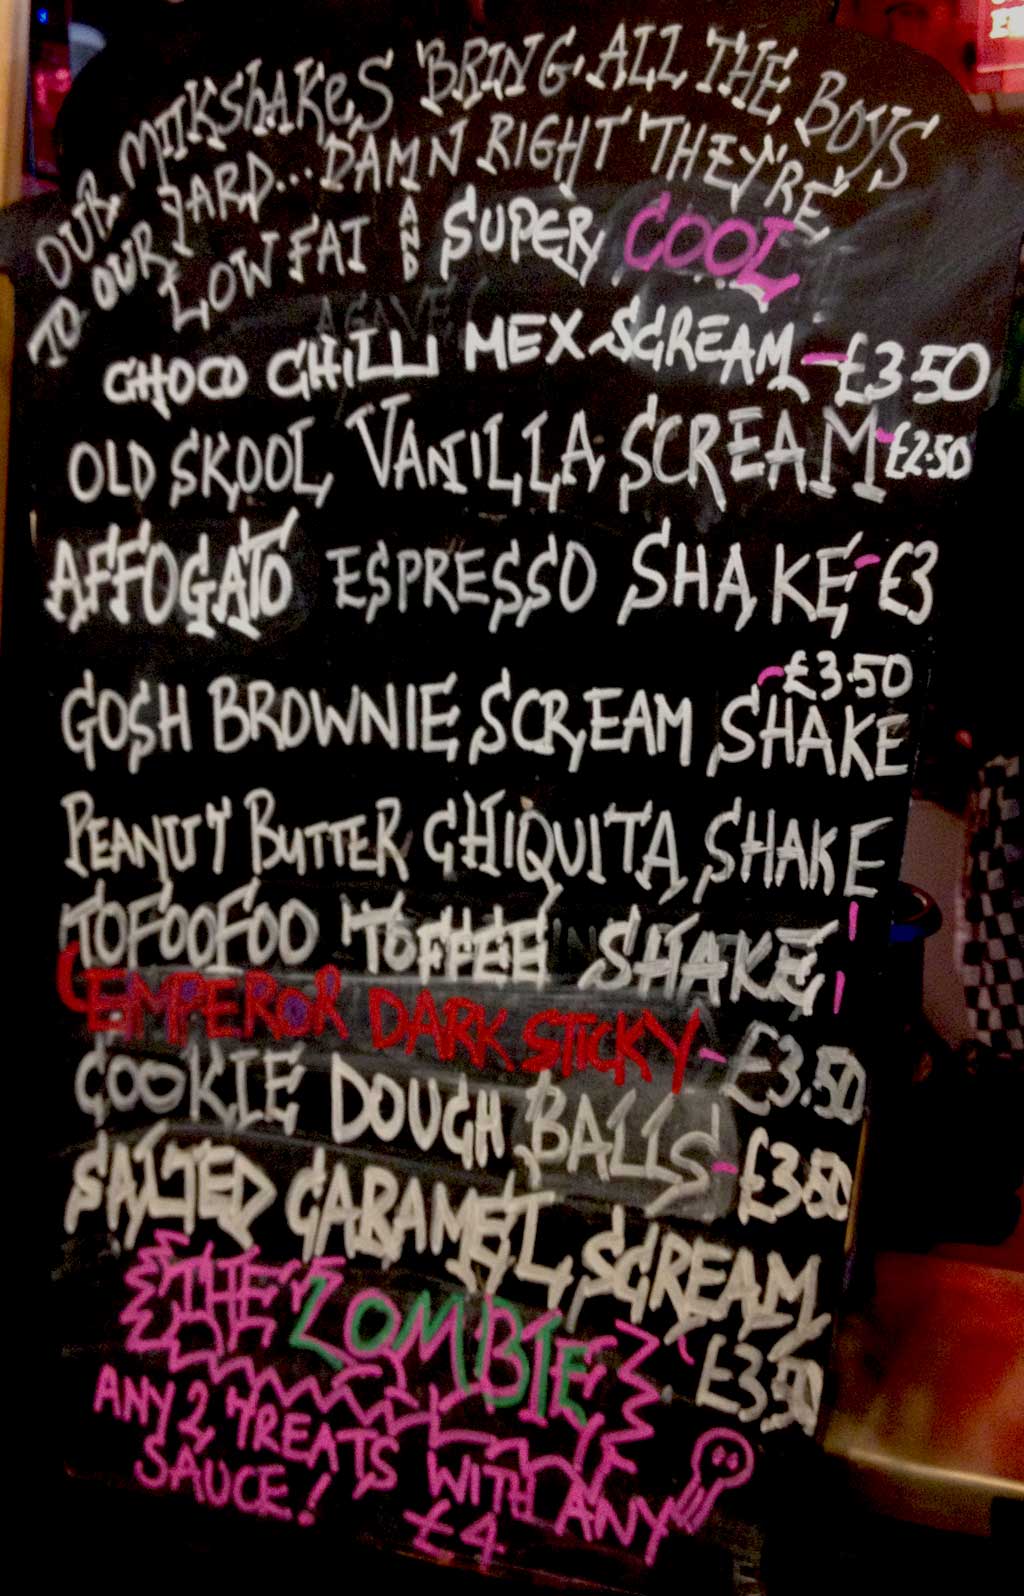 OUR MILKSHAKES BRING ALL THE BOYS
TO OUR YARD... DAMN RIGHT THEY'RE
LOW FAT AND SUPER COOL
CHOCO CHILLI MEX SCREAM - £3.50
OLD SKOOL VANILLA SCREAM - £2.50
AFFOGATO ESPRESSO SHAKE - £3
- £3.50
GOSH BROWNIE SCREAM SHAKE
PEANUT BUTTER CHIQUITA SHAKE
TOFOOFOO TOFFEE SHAKE
EMPEROR DARK STICKY - £3.50
COOKIE DOUGH BALLS - £3.50
SALTED CARAMEL SCREAM
- £3.50
THE ZOMBIE
ANY 2 TREATS WITH ANY
SAUCE!
£4